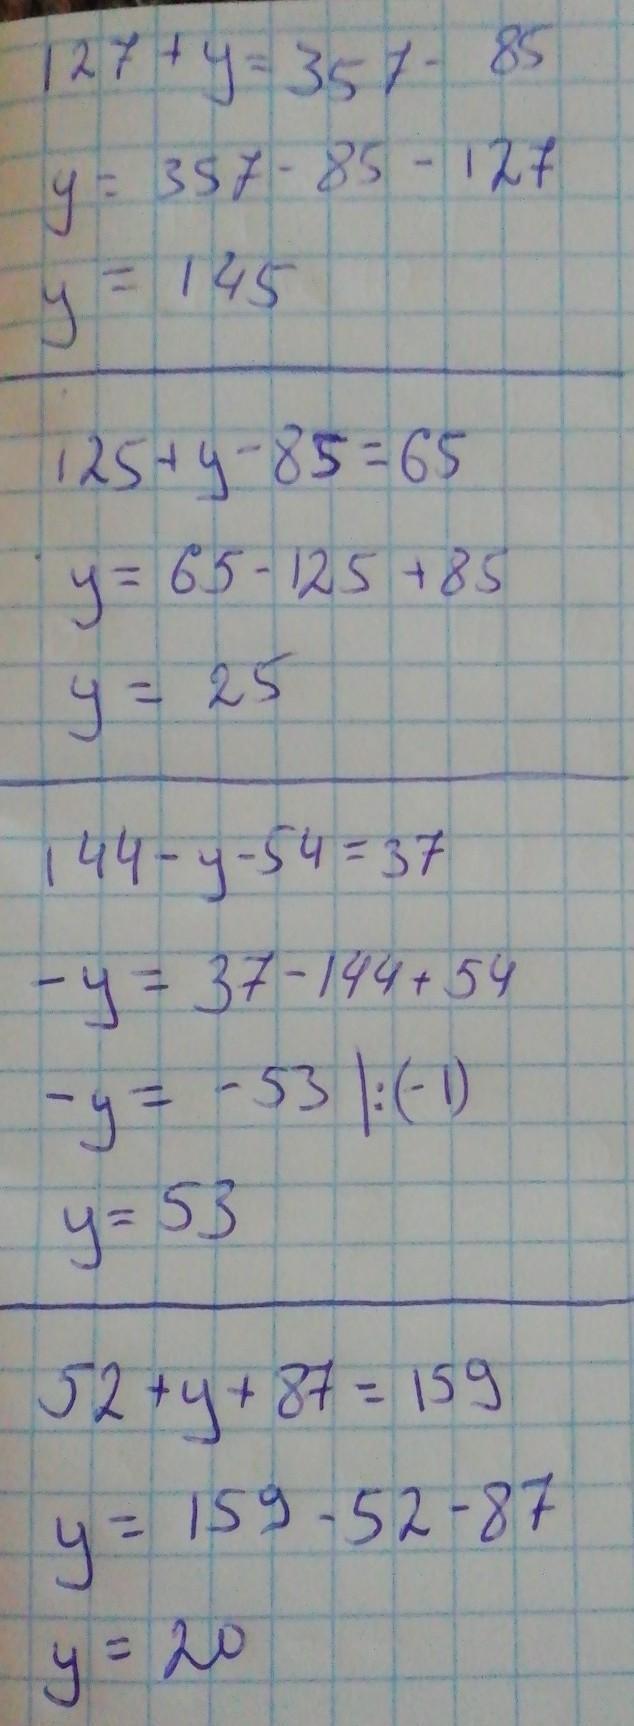 127 + y = 357 - 85
y = 357 - 85 - 127
y = 145
125 + y - 85 = 65
y = 65 - 125 + 85
y = 25
144 - y - 54 = 37
-y = 37 - 144 + 54
-y = -53 |:(-1)
y = 53
52 + y + 87 = 159
y = 159 - 52 - 87
y = 20